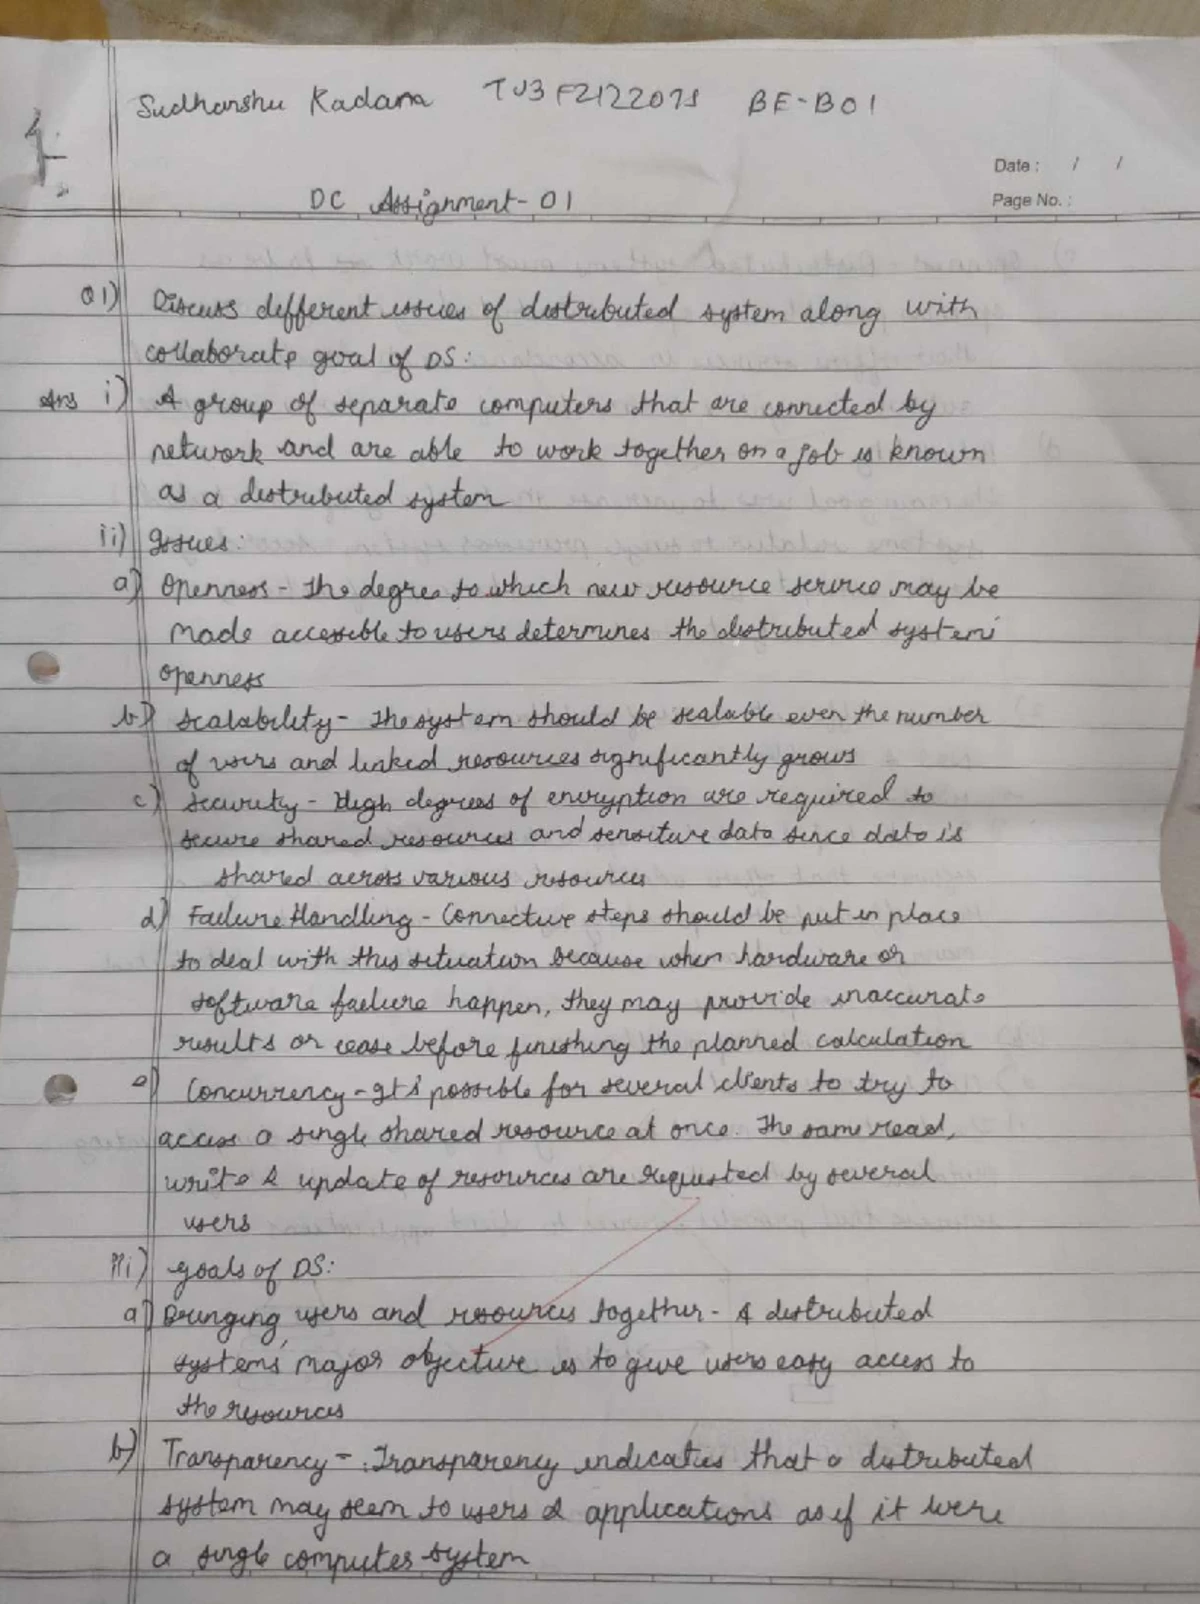 Sudharshu Kadam TU3F2122071 BE-B01
Date: / /
Page No.:
DC Assignment-01
Q1) Discuss different issues of distributed system along with
collaborate goal of DS:
Ans i) A group of separate computers that are connected by
network and are able to work together on a job is known
as a distributed system
ii) Issues:
a) Openness - The degree to which new resource service may be
made accessible to users determines the distributed systems'
openness
b) Scalability - The system should be scalable even the number
of users and linked resources significantly grows
c) Security - High degrees of encryption are required to
secure shared resources and sensitive data since data is
shared across various resources
d) Failure Handling - Connective steps should be put in place
to deal with this situation because when hardware or
software failure happen, they may provide inaccurate
results or cease before finishing the planned calculation
e) Concurrency - It's possible for several clients to try to
access a single shared resource at once. The same read,
write & update of resources are requested by several
users
iii) goals of DS:
a) Bringing users and resources together - A distributed
systems' major objective is to give users easy access to
the resources
b) Transparency - Transparency indicates that a distributed
system may seem to users & applications as if it were
a single computer system